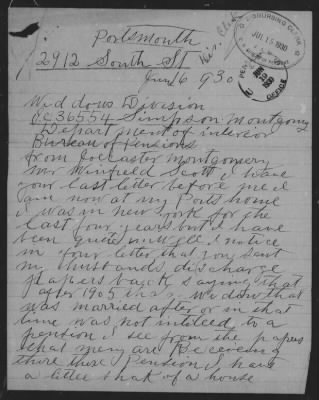 Portsmouth
2912 South St
June 6 930
DISBURSING CLERK
JUL 15 1930
PENSION OFFICE
JUN 9 1930
Widdous Division
36554 Simpson Montgomy
Department of interior
Bureau of Pensions
from Montgomery
Mr Winfield Scott I have
your last letter before me I
am now at my Ports home
I was in new york for the
last four years but I have
been quite I notice
in your letter that you sent
my husbands discharge
papers back saying that
after 1905 that widow that
was married after or in that
time was not intiled to a
pension I see from the papers
that meny are Receiveng
there there Pension I have
a little shak of a house